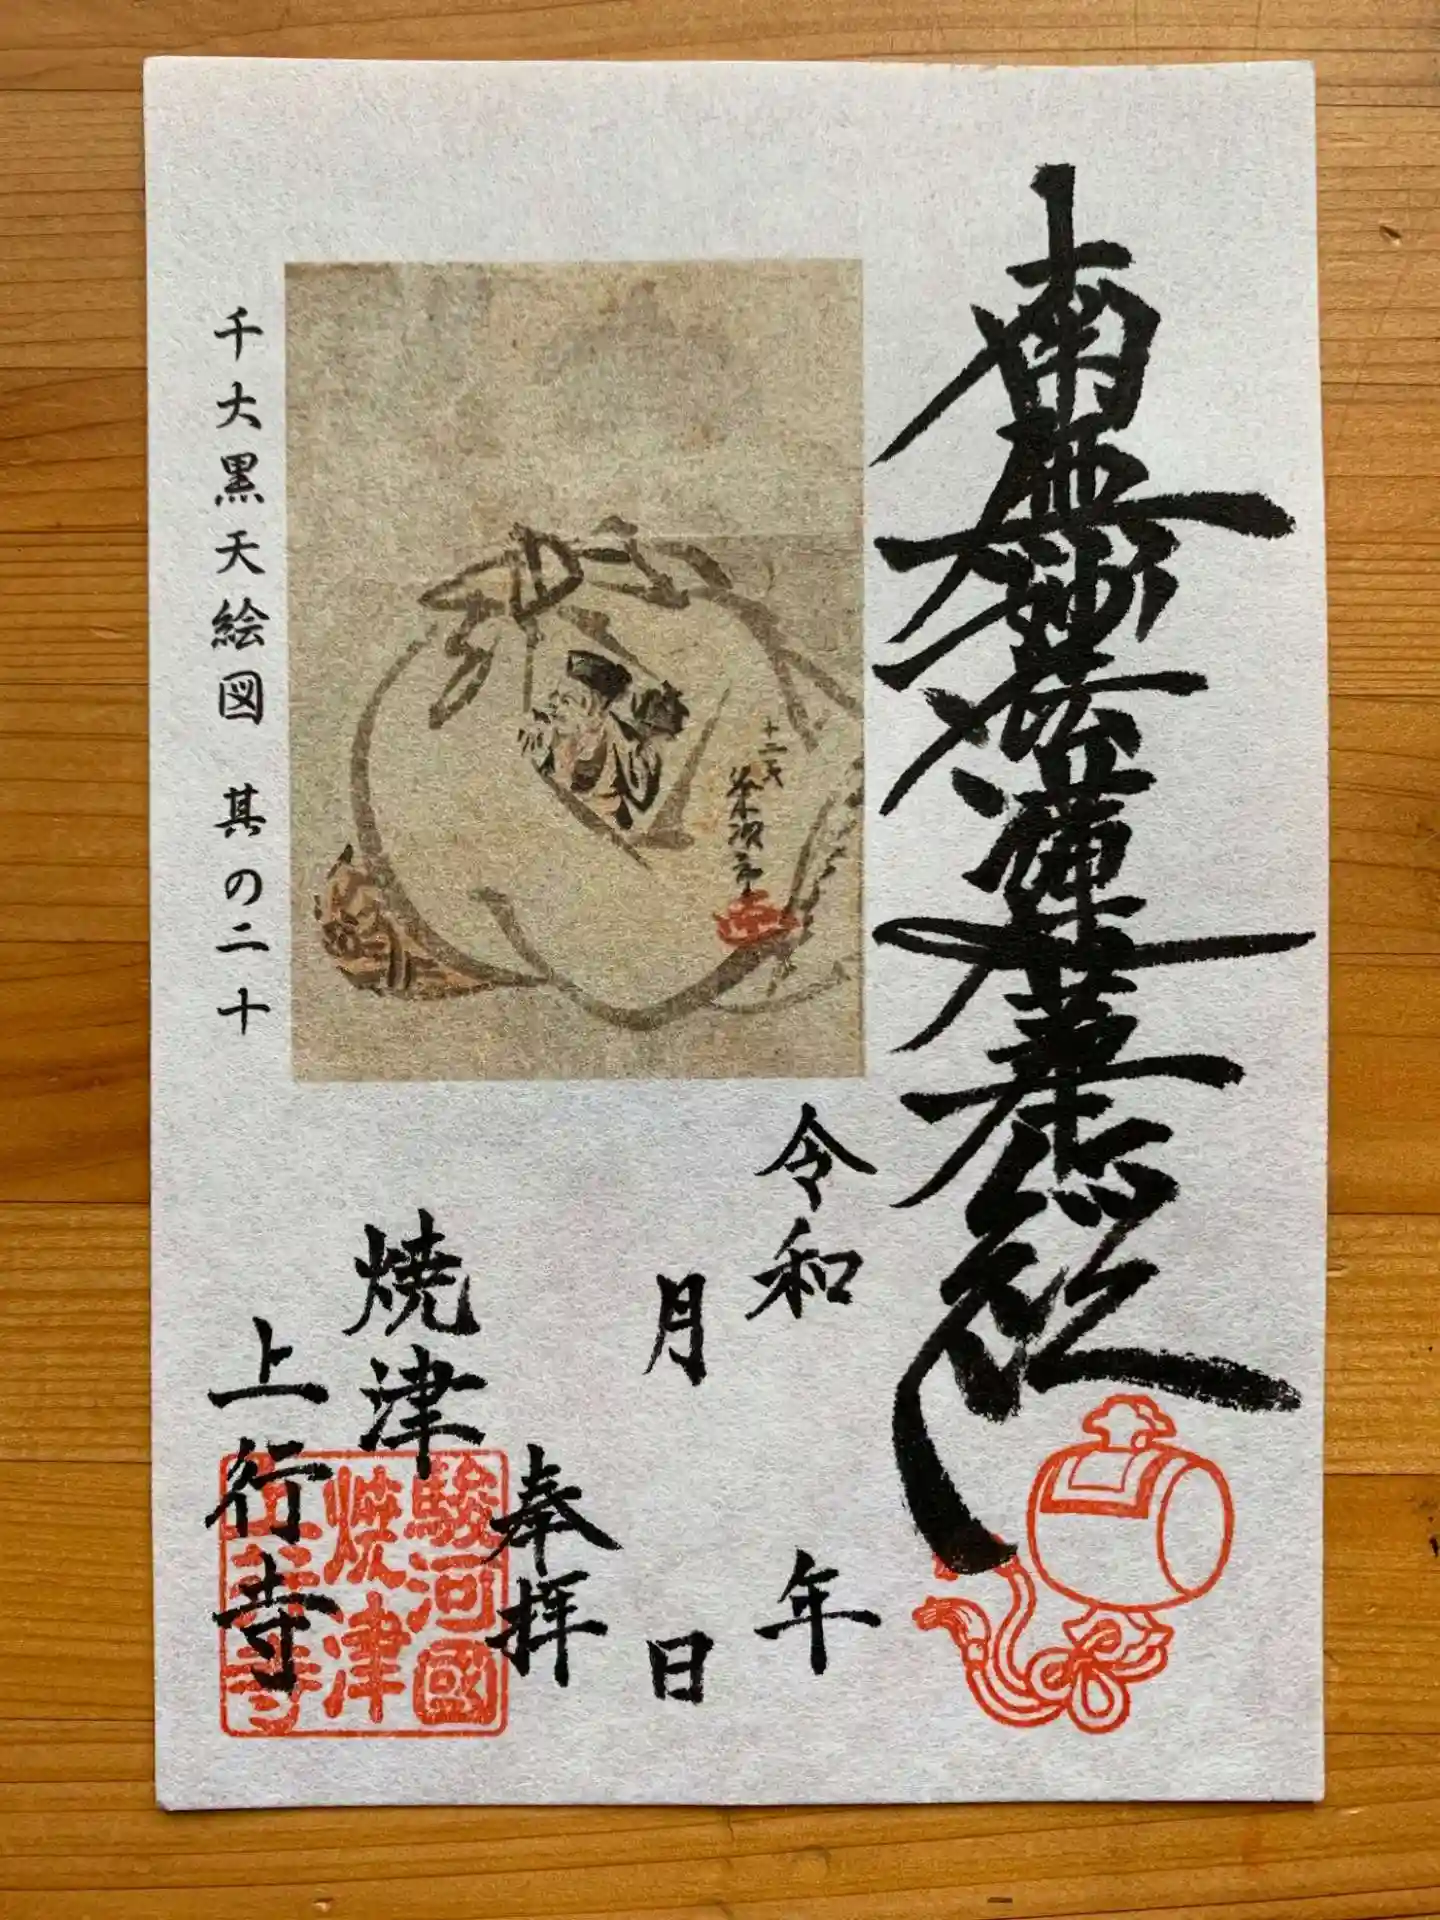 南無妙法蓮華経
令和 年
月 日
奉拝
焼津
上行寺
駿河國
焼津
上行寺
十二才
千大黒天絵図 其の二十